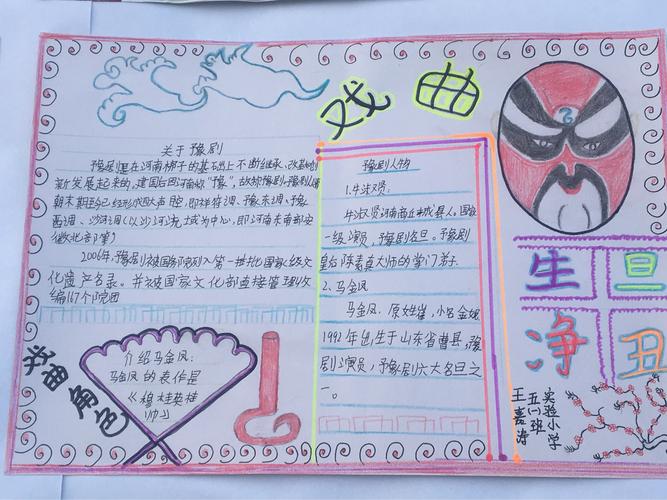 戏曲
关于豫剧
豫剧是在河南梆子的基础上不断继承、改革和创
新发展起来的,建国后因河南称“豫”,故称豫剧。豫剧从明
朝末期至今已经形成四大声腔,即祥符调、豫东调、豫
西调、沙河调(以沙河流域为中心,即河南东南部安
徽北部等)
2006年,豫剧被国务院列入第一批
国家级文
化遗产名录。并被国家文化部直接管理
编117个院团
豫剧人物
1.牛淑贤:
牛淑贤河南商丘柘城县人。国家
一级演员,豫剧名旦。豫剧
皇后陈素真大师的掌门弟子。
2、马金凤
马金凤,原姓崔,小名金妮
1992年出生于山东省曹县,豫
剧演员,豫剧六大名旦之
一。
生旦
净丑
戏曲角色
介绍马金凤:
马金凤的表作是
《穆桂英挂
帅》
实验小学
五(一)班
王喜涛